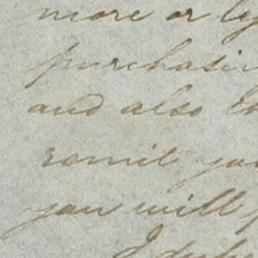 more or
purchasin
and also
remit you
you will
I